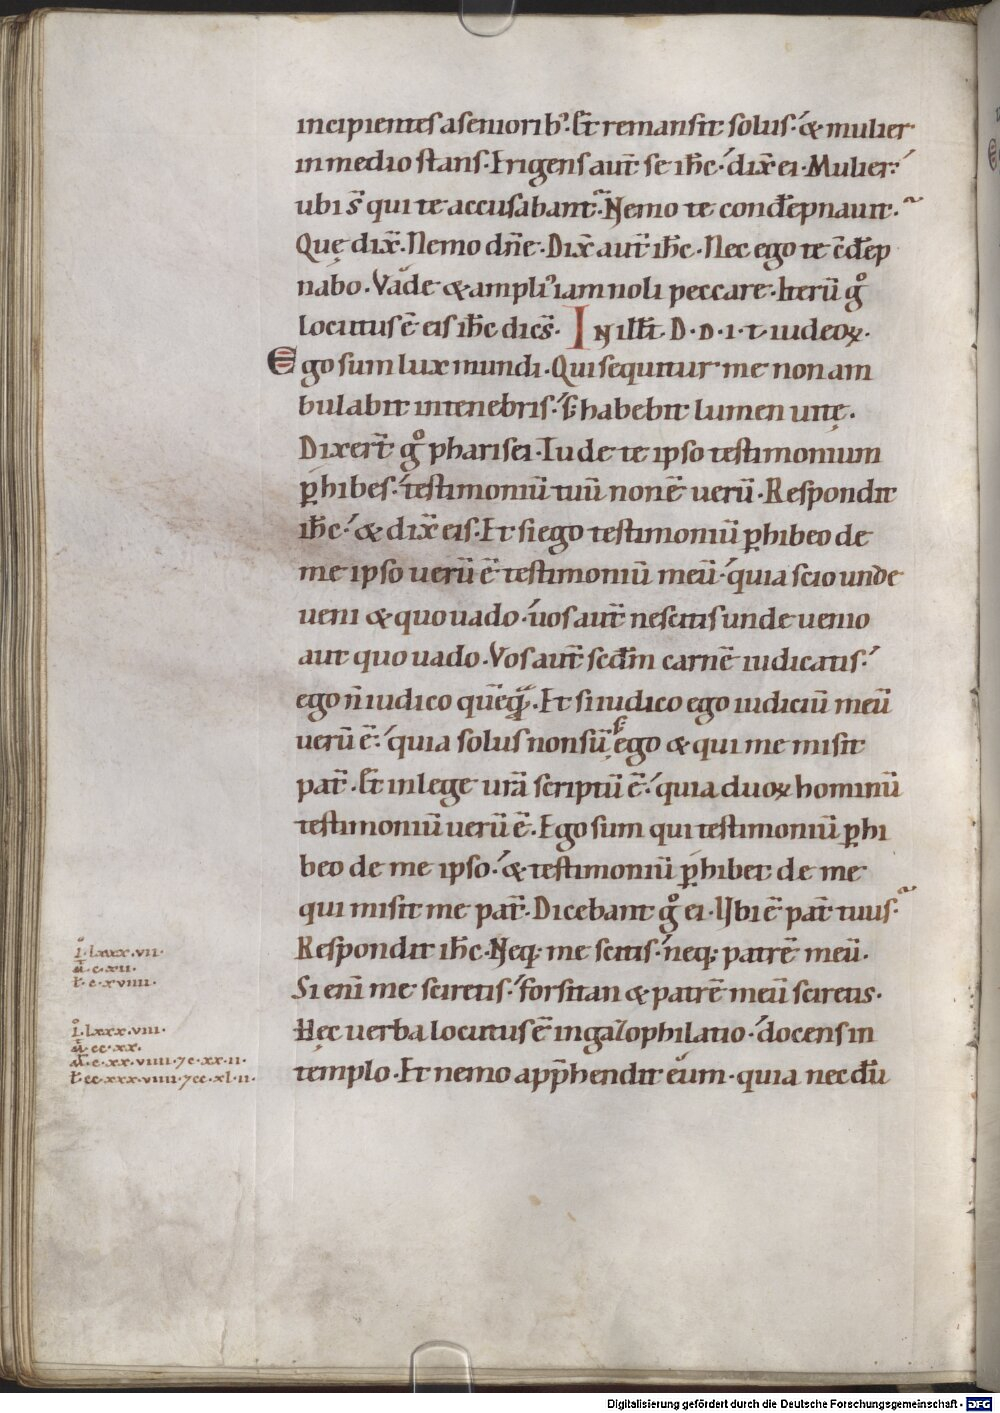 incipientes a seniorib᾽. Et remansit solus. & mulier
in medio stans. Erigens aut̄ se ih̄c. dix̄ ei. Mulier.
ubi s̄ qui te accusabant. Nemo te condēpnauit.
Quę dix̄. Nemo dn̄e. Dix̄ aut̄ ih̄c. Nec ego te c̄dēp
nabo. Vade & ampli᾽ iam noli peccare. Iterū gͦ
locutus ē eis ih̄c dicēs. In ill̄t. D. D. I. T. iudeoꝝ.
Ego sum lux mundi. Qui sequitur me non am
bulabit in tenebris. s; habebit lumen uitę.
Dixer̄t gͦ pharisei. Tu de te ipso testimonium
ꝑhibes. testimoniū tuū non ē uerū. Respondit
ih̄c. & dix̄ eis. Et si ego testimoniū ꝑhibeo de
me ipso uerū ē testimoniū meū. quia scio unde
ueni & quo uado. uos aut̄ nescitis unde uenio
aut quo uado. Vos aut̄ scd̄m carnē iudicatis.
ego n̄ iudico quēq̄. Et si iudico ego iudiciū meū
uerū ē. quia solus non sū. s; ego & qui me misit
pat̄. Et in lege urā scriptū ē. quia duoꝝ hominū
testimoniū uerū ē. Ego sum qui testimoniū ꝑhi
beo de me ipso. & testimoniū ꝑhibet de me
qui misit me pat̄. Dicebant gͦ ei. Ubi ē pat̄ tuus.
Respondit ih̄c. Neq; me scitis. neq; patrē meū.
Si enī me sciretis. forsitan & patrē meū sciretis.
Hęc uerba locutus ē in gazophilatio. docens in
templo. Et nemo app̄hendit eum. quia necdū
I. lxxx.vii.
M̄. c.xii.
L̄. c.xviiii.
I. lxxx.viii.
M̄. cc.xx.
M̄. c.xx.viiii. ⁊ c.xx.ii.
L̄. cc.xxx.viiii. ⁊ cc.xl.ii.
Digitalisierung gefördert durch die Deutsche Forschungsgemeinschaft - DFG